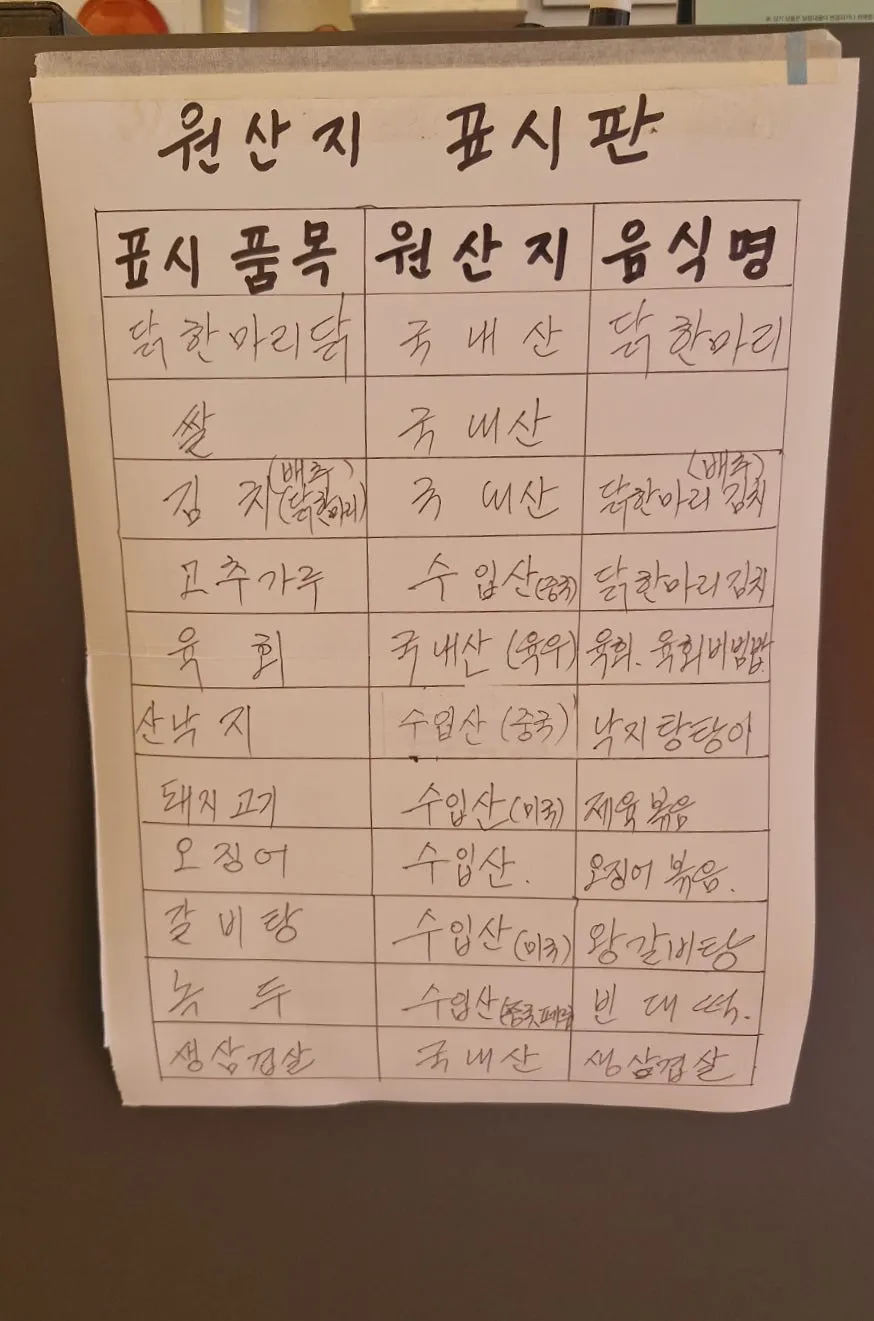 원산지 표시판
표시 품목 원산지 음식명
닭한마리닭 국내산 닭한마리
쌀 국내산
김치(배추)(닭한마리) 국내산 닭한마리(배추)김치
고추가루 수입산(중국) 닭한마리김치
육회 국내산(육우) 육회. 육회비빔밥
산낙지 수입산(중국) 낙지탕탕이
돼지고기 수입산(미국) 제육볶음
오징어 수입산. 오징어 볶음.
갈비탕 수입산(미국) 왕갈비탕
녹두 수입산(중국 빈대떡.
생삼겹살 국내산 생삼겹살